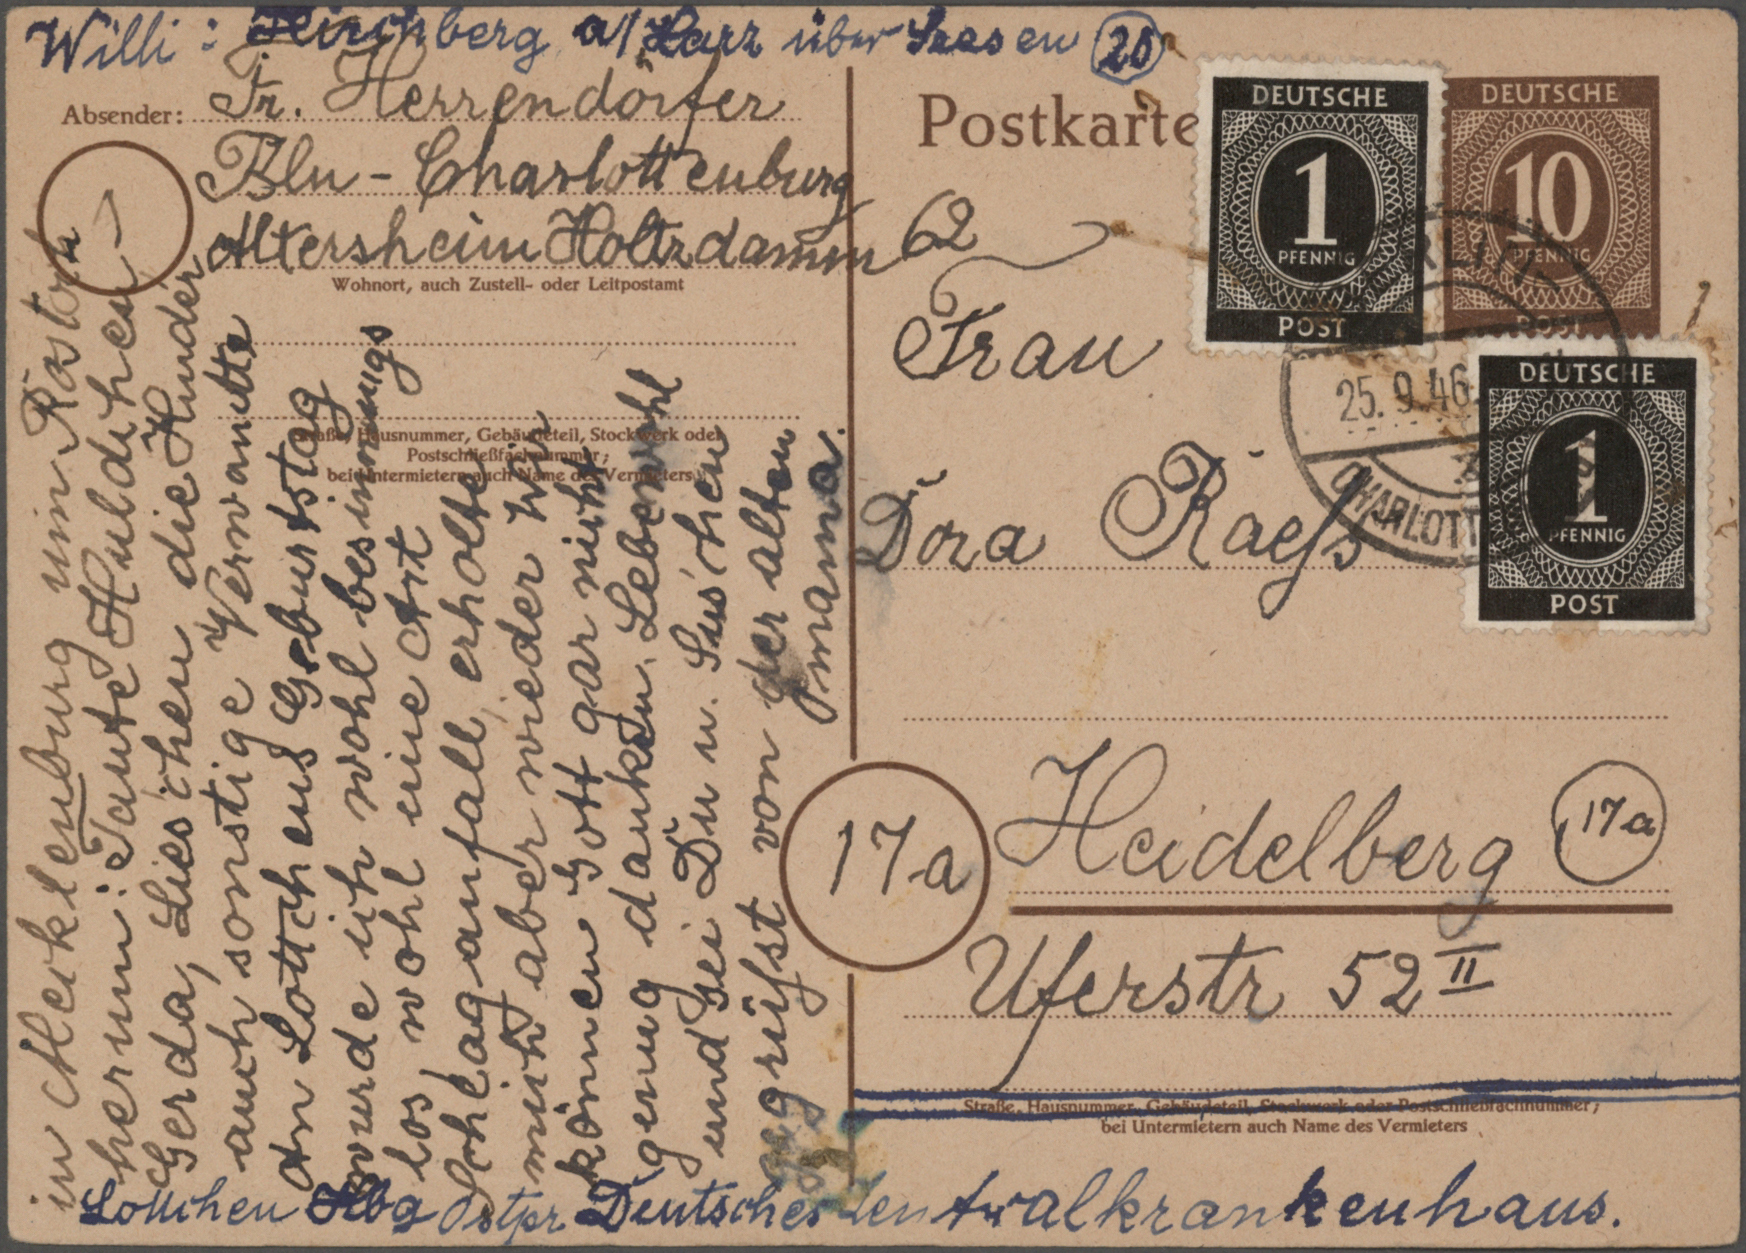 Willi: Hirschberg a/Harz über Seesen (20)
Absender: Fr. Herrendörfer
Bln - Charlottenburg
Altersheim Holtzdamm 62
Wohnort, auch Zustell- oder Leitpostamt
Straße, Hausnummer, Gebäudeteil, Stockwerk oder
Postschließfachnummer;
bei Untermietern auch Name des Vermieters
in Mecklenburg um Rostock
herum: Tante Huldchen
Gerda, Lies'chen die Kinder
auch sonstige Verwandte
An Lottchens Geburtstag
wurde ich wohl besinnungs
los, wohl eine Art
Schlaganfall, erholte
mich aber wieder Wir
können Gott gar nicht
genug danken. Lebewohl
und sei Du u. Sus'chen
gegrüßt von der alten
mama.
Postkarte
DEUTSCHE
1
PFENNIG
POST
DEUTSCHE
10
PFENNIG
POST
DEUTSCHE
1
PFENNIG
POST
BERLIN-
25.9.46.
CHARLOTT
Frau
Dora Raeſs
17a
Heidelberg 17a
Uferstr 52 II
Straße, Hausnummer, Gebäudeteil, Stockwerk oder Postschließfachnummer;
bei Untermietern auch Name des Vermieters
Lottchen Kbg Ostpr Deutsches Zentralkrankenhaus.